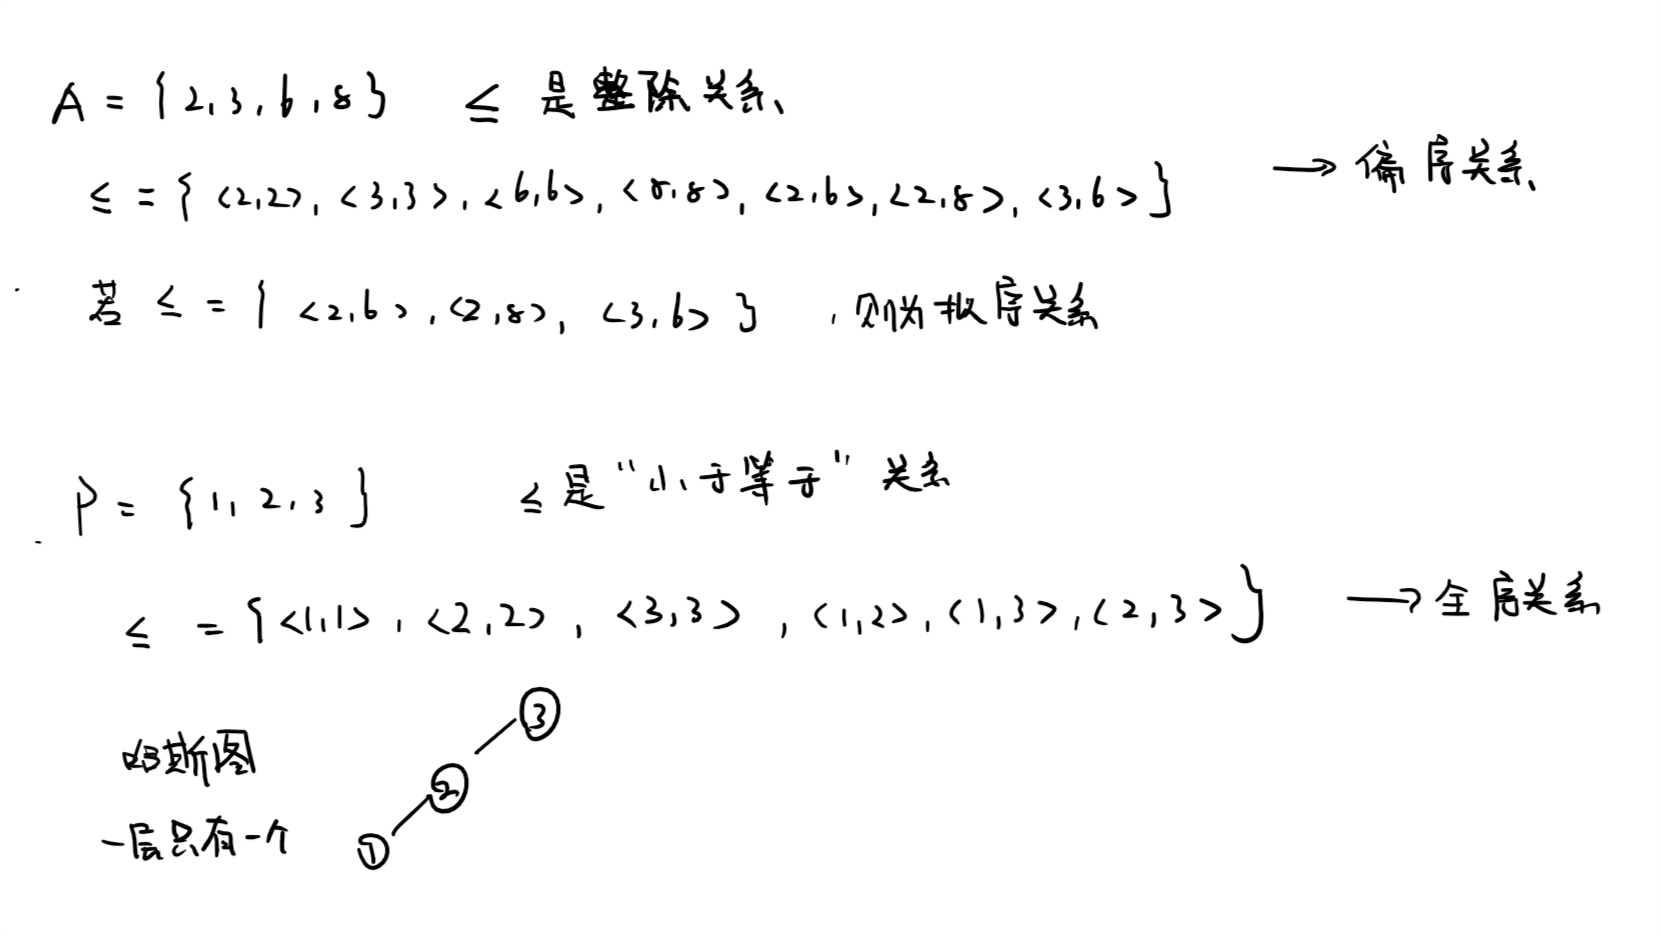 A = {2,3,6,8} ≤ 是整除关系、
≤ = { <2,2>, <3,3>, <6,6>, <8,8>, <2,6>, <2,8>, <3,6> } → 偏序关系
若 ≤ = { <2,6>, <2,8>, <3,6> } , 则为拟序关系
P = {1, 2, 3} ≤ 是 "小于等于" 关系
≤ = {<1,1>, <2,2>, <3,3>, <1,2>, <1,3>, <2,3>} → 全序关系
哈斯图
一层只有一个
③
②
①